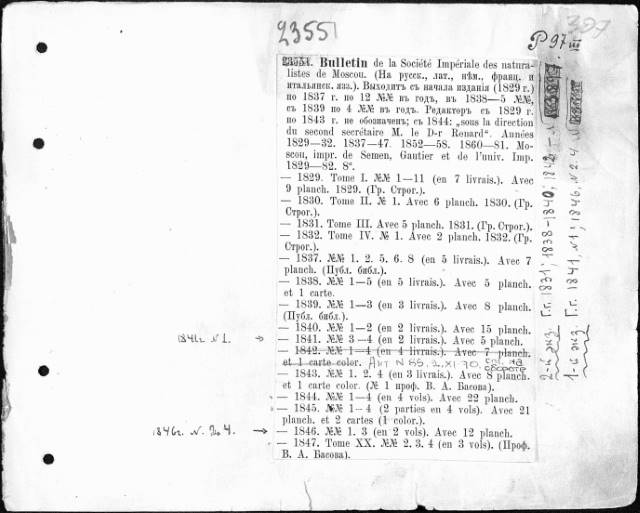 23551
P 97 III
397
23551. Bulletin de la Société Impériale des natura-
listes de Moscou. (На русск., лат., нѣм., франц. и
итальянск. яз.). Выходитъ съ начала изданія (1829 г.)
по 1837 г. по 12 №№ въ годъ, въ 1838—5 №№,
съ 1839 по 4 №№ въ годъ. Редакторъ съ 1829 г.
по 1843 г. не обозначенъ; съ 1844: „sous la direction
du second secrétaire M. le D-r Renard“. Années
1829—32. 1837—47. 1852—58. 1860—81. Mo-
scou, impr. de Semen, Gautier et de l'univ. Imp.
1829—82. 8°.
— 1829. Tome I. №№ 1—11 (en 7 livrais.). Avec
9 planch. 1829. (Гр. Строг.).
— 1830. Tome II. № 1. Avec 6 planch. 1830. (Гр.
Строг.).
— 1831. Tome III. Avec 5 planch. 1831. (Гр. Строг.).
— 1832. Tome IV. № 1. Avec 2 planch. 1832. (Гр.
Строг.).
— 1837. №№ 1. 2. 5. 6. 8 (en 5 livrais.). Avec 7
planch. (Публ. библ.).
— 1838. №№ 1—5 (en 5 livrais.). Avec 5 planch.
et 1 carte.
— 1839. №№ 1—3 (en 3 livrais.). Avec 8 planch.
(Публ. библ.).
— 1840. №№ 1—2 (en 2 livrais.). Avec 15 planch.
1841г. N 1.
— 1841. №№ 3—4 (en 2 livrais.). Avec 5 planch.
— 1842. №№ 1—4 (en 4 livrais.). Avec 7 planch.
et 1 carte color. Акт N 85. 2.XI.70. см. на обороте
— 1843. №№ 1. 2. 4 (en 3 livrais.). Avec 8 planch.
et 1 carte color. (№ 1 проф. В. А. Басова).
— 1844. №№ 1—4 (en 4 vols). Avec 22 planch.
— 1845. №№ 1—4 (2 parties en 4 vols). Avec 21
planch. et 2 cartes (1 color.).
1846г. N. 2 4.
— 1846. №№ 1. 3 (en 2 vols). Avec 12 planch.
— 1847. Tome XX. №№ 2. 3. 4 (en 3 vols). (Проф.
В. А. Басова).
2-й экз. Г.г. 1831; 1838-1840; 1842
1-й экз. Г.г. 1841, N1; 1846, N 2. 4